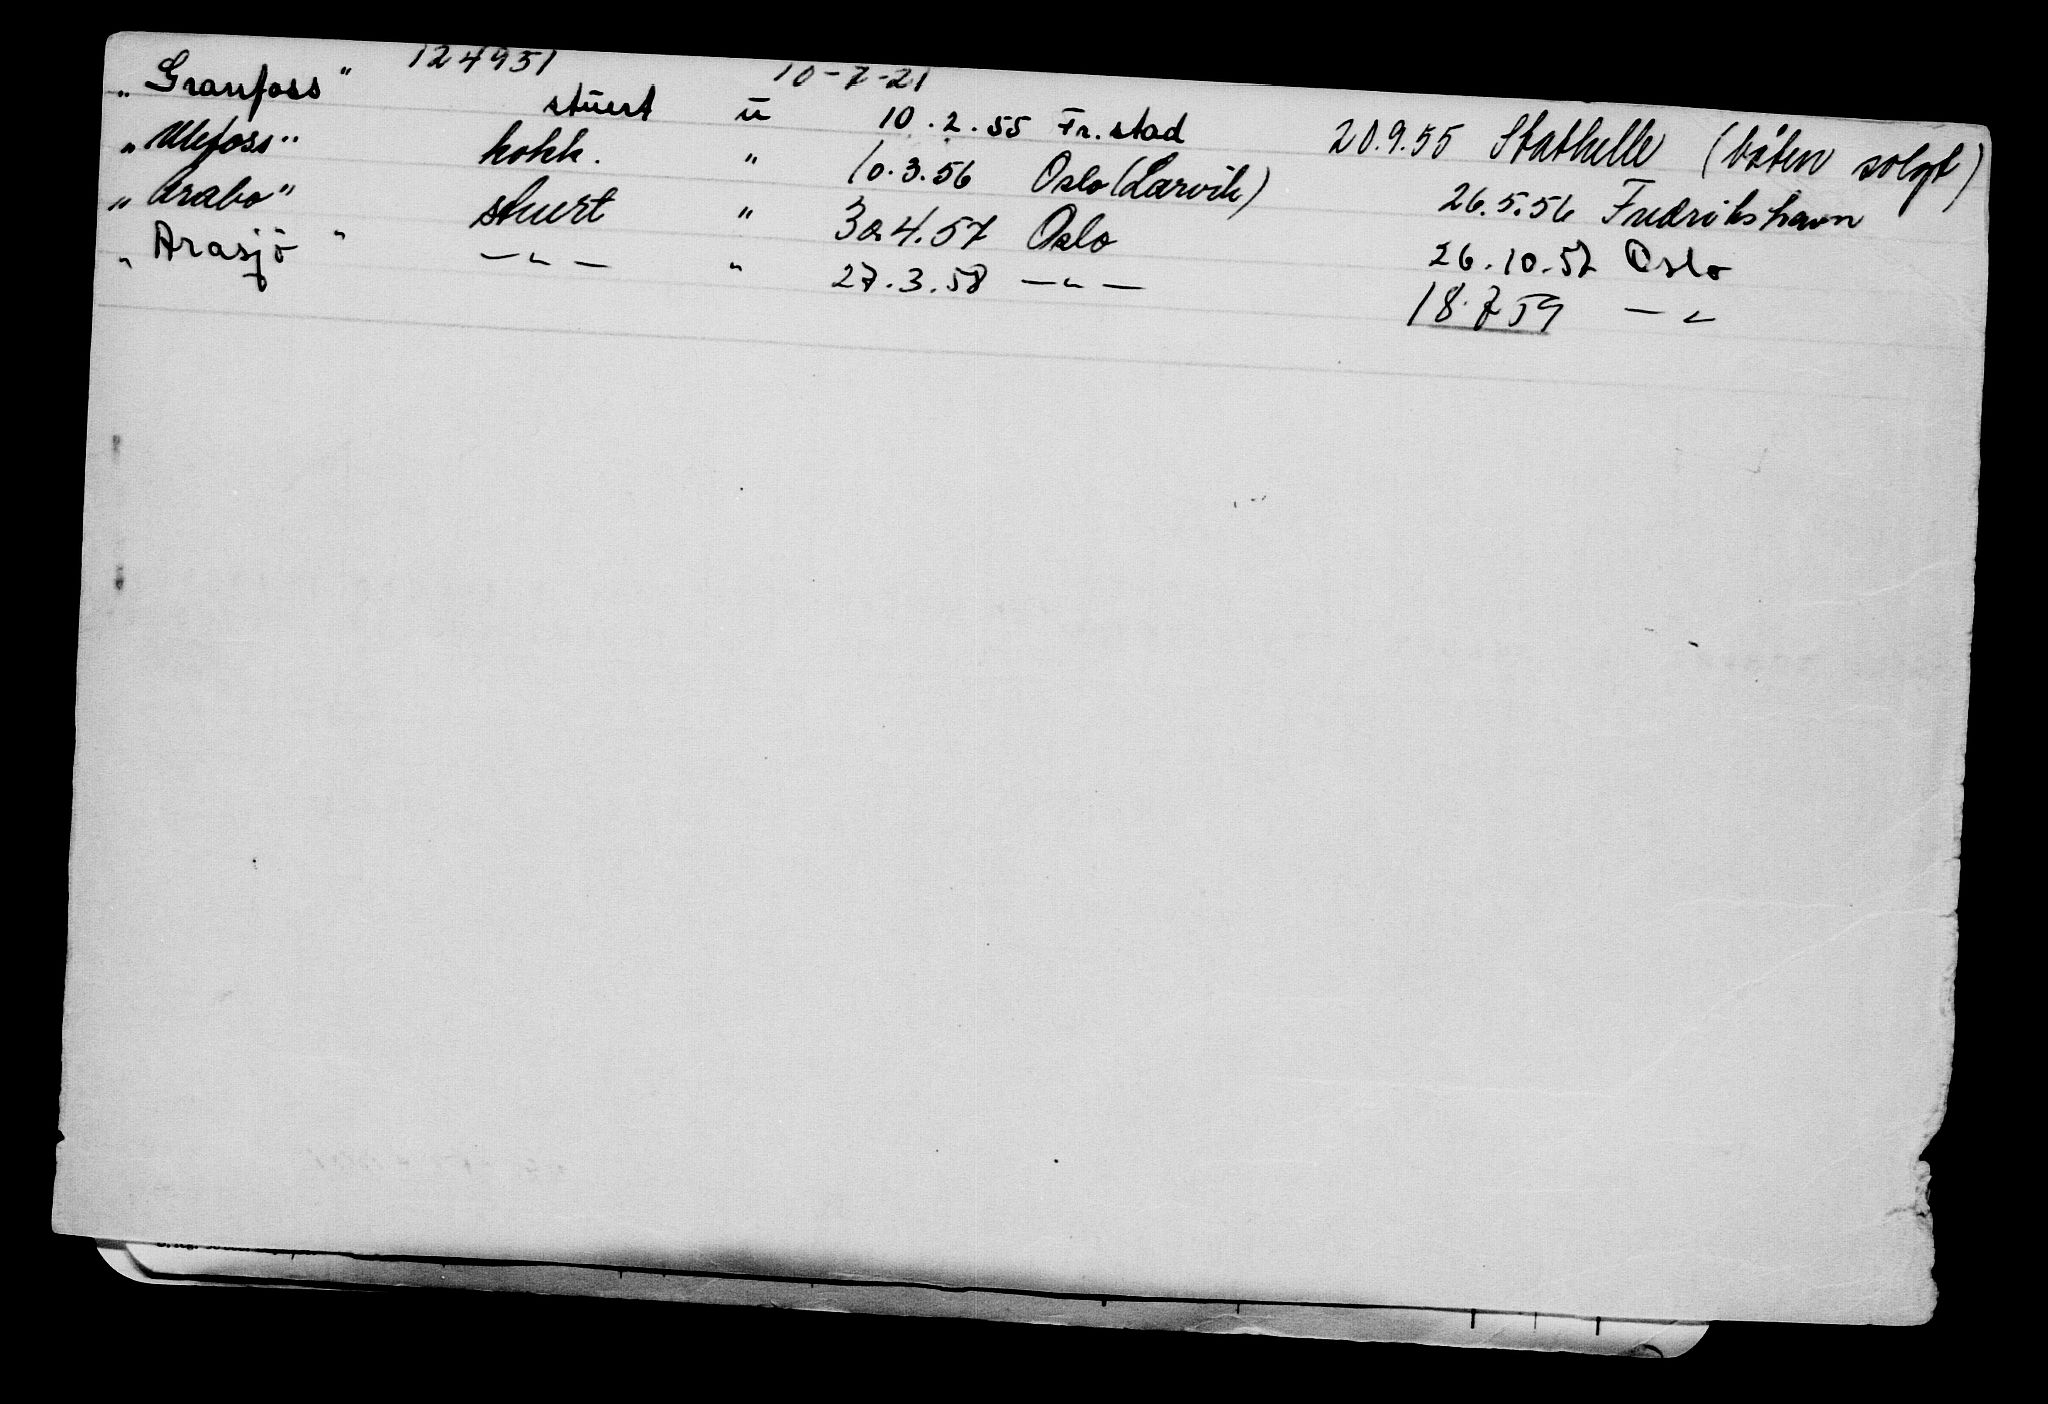 124951 10-7-21
"Granfoss" stuert u 10.2.55 Fr.stad 20.9.55 Stathelle (båten solgt)
"Ulefoss" kokk. " 10.3.56 Oslo (Larvik) 26.5.56 Fredrikshavn
"Arabo" stuert " 30.4.57 Oslo 26.10.57 Oslo
"Arasjö" — " — " 27.3.58 — " — 18.7.59 — "